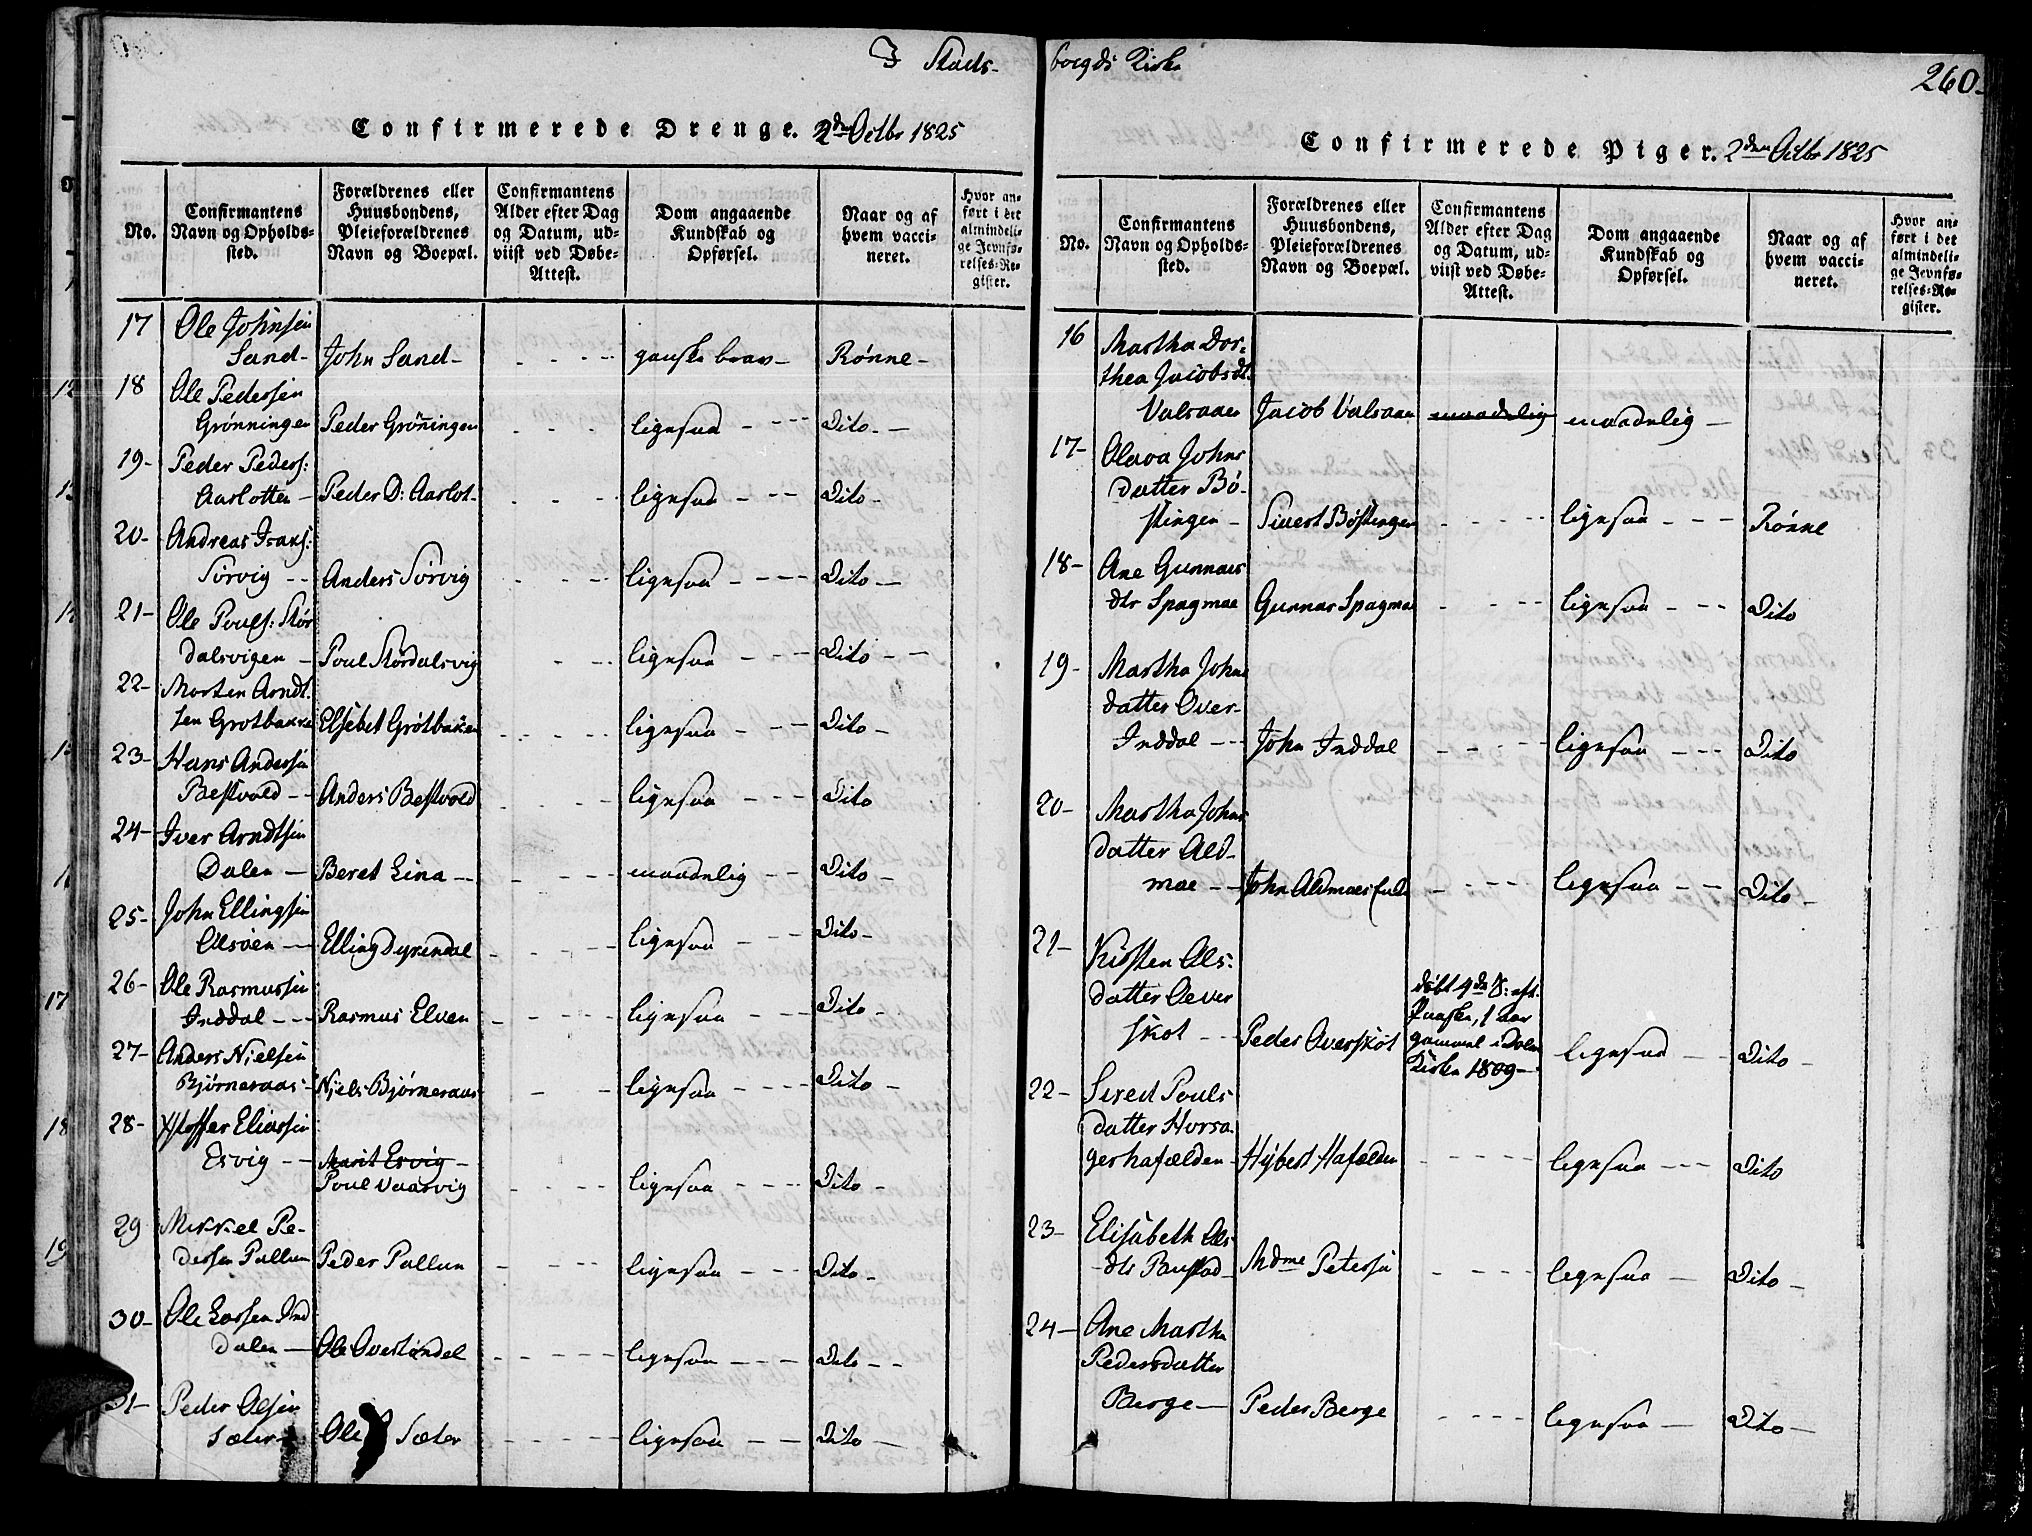 I Stads-
Confirmerede Drenge. 2den Octbr 1825
No.
Confirmantens Navn og Opholds-sted.
Forældrenes eller Huusbondens, Pleieforældrenes Navn og Boepæl.
Confirmantens Alder efter Dag og Datum, ud-viist ved Døbe-Attest.
Dom angaaende Kundskab og Opførsel.
Naar og af hvem vacci-neret.
Hvor an-ført i det almindeli-ge Jevnfø-relses-Re-gister.
17 Ole Johnsen
Sand- John Sand- - - - - ganske brav- Rønne-
18 Ole Pedersen
Grønningen Peder Grønningen - - - ligesaa - - - - Dito- -
19- Peder Peders:
Aarlotten- Peder D: Aarlot. - - - ligesaa - - - Dito-
20- Andreas
Sørvig - - Anders Sørvig - - - ligesaa - - - - Dito-
21- Ole Pouls: Stør
dalsvigen - Poul Stordalsvig - - - ligesaa - - - Dito - -
22- Morten Arndt
sen Grotbakke Elsebet Grøtbakken - - - - ligesaa - - - Dito-
23- Hans Andersen
Bestvold - - Anders Bestvold - - - - ligesaa - - - Dito
24- Iver Arndtsen
Dalen - Beret Lina - - - - - - maadelig - - Dito-
25- John Ellingsen
Olsøen - - Elling Dyrendal - - - - ligesaa - - - Dito-
26- Ole Rasmussen
Inddal - - - Rasmus Elven - - - - ligesaa - - - Dito-
27- Anders Nielsen
Bjørneraas- Niels Bjørneraas - - ligesaa - - - Dito-
28- Xstoffer Eliassen
Ervig - - Marit Ervig -
Poul Vaarvig - - - - ligesaa - - - - Dito-
29 Mikkel Pe-
dersen Pallun Peder Pallun - - - - ligesaa - - - Dito-
30- Ole Larsen Ind
dalen - Ole Overinddal - - - - - ligesaa - - - - Dito - -
31- Peder Olsen
Sæter- Ole Sæter - - - - - ligesaa - - - Dito-
12
17
18
19
boigds Kirke
260-
Confirmerede Piger. 2den Octbr 1825
No.
Confirmantens Navn og Opholds-sted.
Forældrenes eller Huusbondens, Pleieforældrenes Navn og Boepæl.
Confirmantens Alder efter Dag og Datum, ud-viist ved Døbe-Attest.
Dom angaaende Kundskab og Opførsel.
Naar og af hvem vacci-neret.
Hvor an-ført i det almindeli-ge Jevnfø-relses-Re-gister.
16 Martha Dor-
thea Jacobsdt.
Valsaaen Jacob Valsaaen maadelig maadelig -
17- Olava Johns
datter Bø-
stingen - Sivert Bøstingen - - - - ligesaa - - - Rønne
18- Ane Gunnars
dtr Spagmae Gunnar Spagmae - - - - ligesaa - - - Dito
19- Martha Johns
datter Over-
Inddal - - John Inddal - - - - - ligesaa - - - Dito
20- Martha Johns
datter Ald-
mae - - John Aldmae - - - - ligesaa - - Dito-
21- Kirsten Ols:
datter Oever
skot - - Peder Averskot ligesaa - Dito-
døbt 4de S: eft.
Paaske, 1 aar
gammel i
Kirke 1809-
22- Sired Pouls
datter Horsa-
gerhafælden - Hybert Hafælden - - - - - ligesaa - - - Dito
23- Elisabeth Ols
dtr Bustad- Mdme Petersen - - - - ligesaa - Dito-
24- Ane Martha
Pedersdatter
Berge - Peder Berge - - - - ligesaa - Dito-